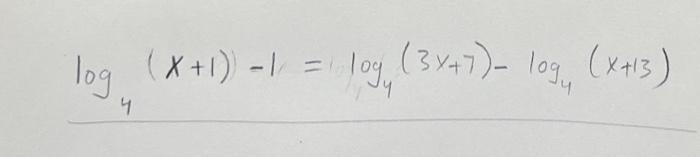 log₄ (x+1) - 1 = log₄ (3x+7) - log₄ (x+13)